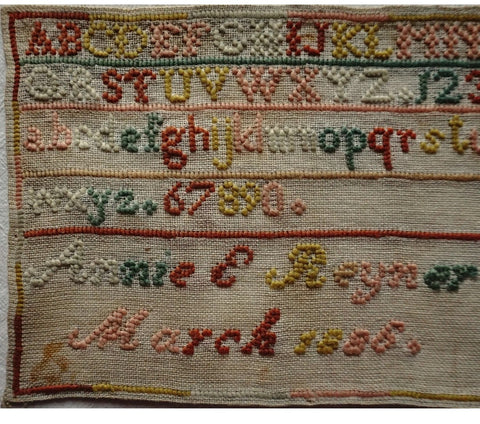 ABCDEFGHIJKLMN
QRSTUVWXYZ. 123
abcdefghijklmnopqrstu
wxyz. 67890.
Annie E Reyner
March 1886.